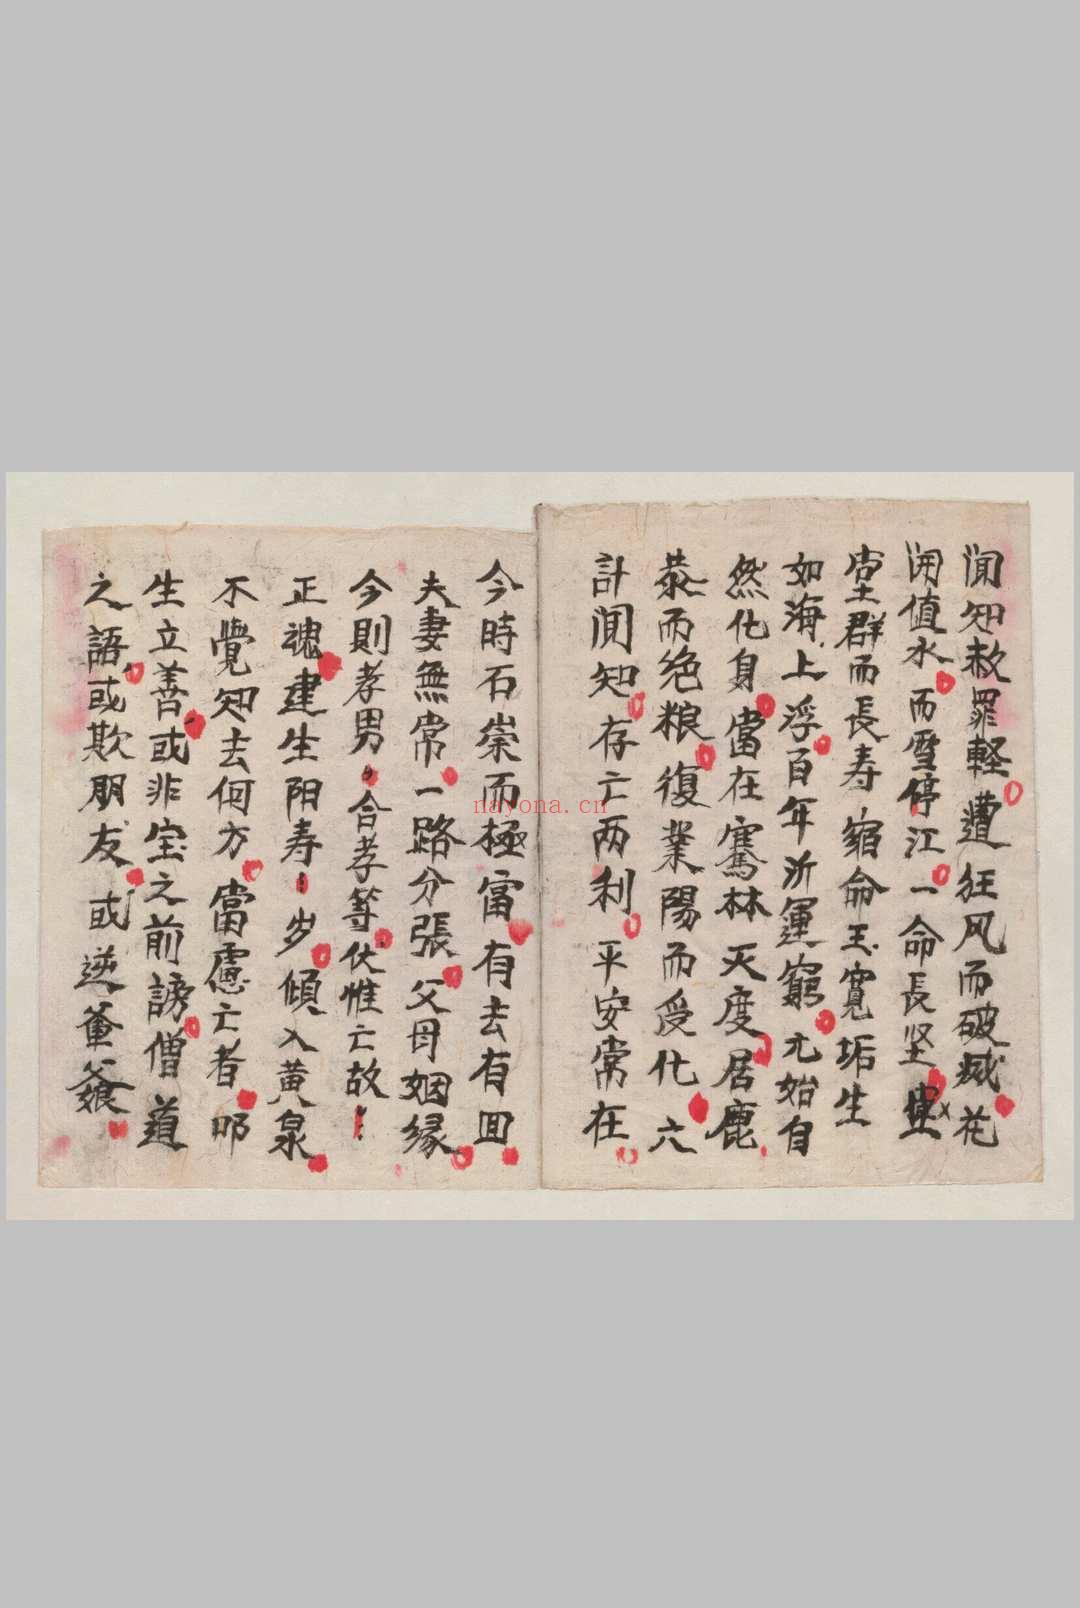 闻知赦罪軽遭狂风而破威花
開值水而雪停江一命長坚
堂群而長寿縮命玉寛垢生
如海上浮百年沂運窮元始自
然化身當在騫林天度居鹿
恭而绝粮復業陽而受化六
計闻知存亡两利平安常在
今時石崇而極富有去有囬
夫妻無常一路分張父母姻縁
今則孝男合孝等伏惟亡故
正魂建生阳寿岁傾入黄泉
不覺知去何方當慮亡者叩
生立善或非宝之前謗僧道
之語或欺朋友或逆爹娘
nayona.cn